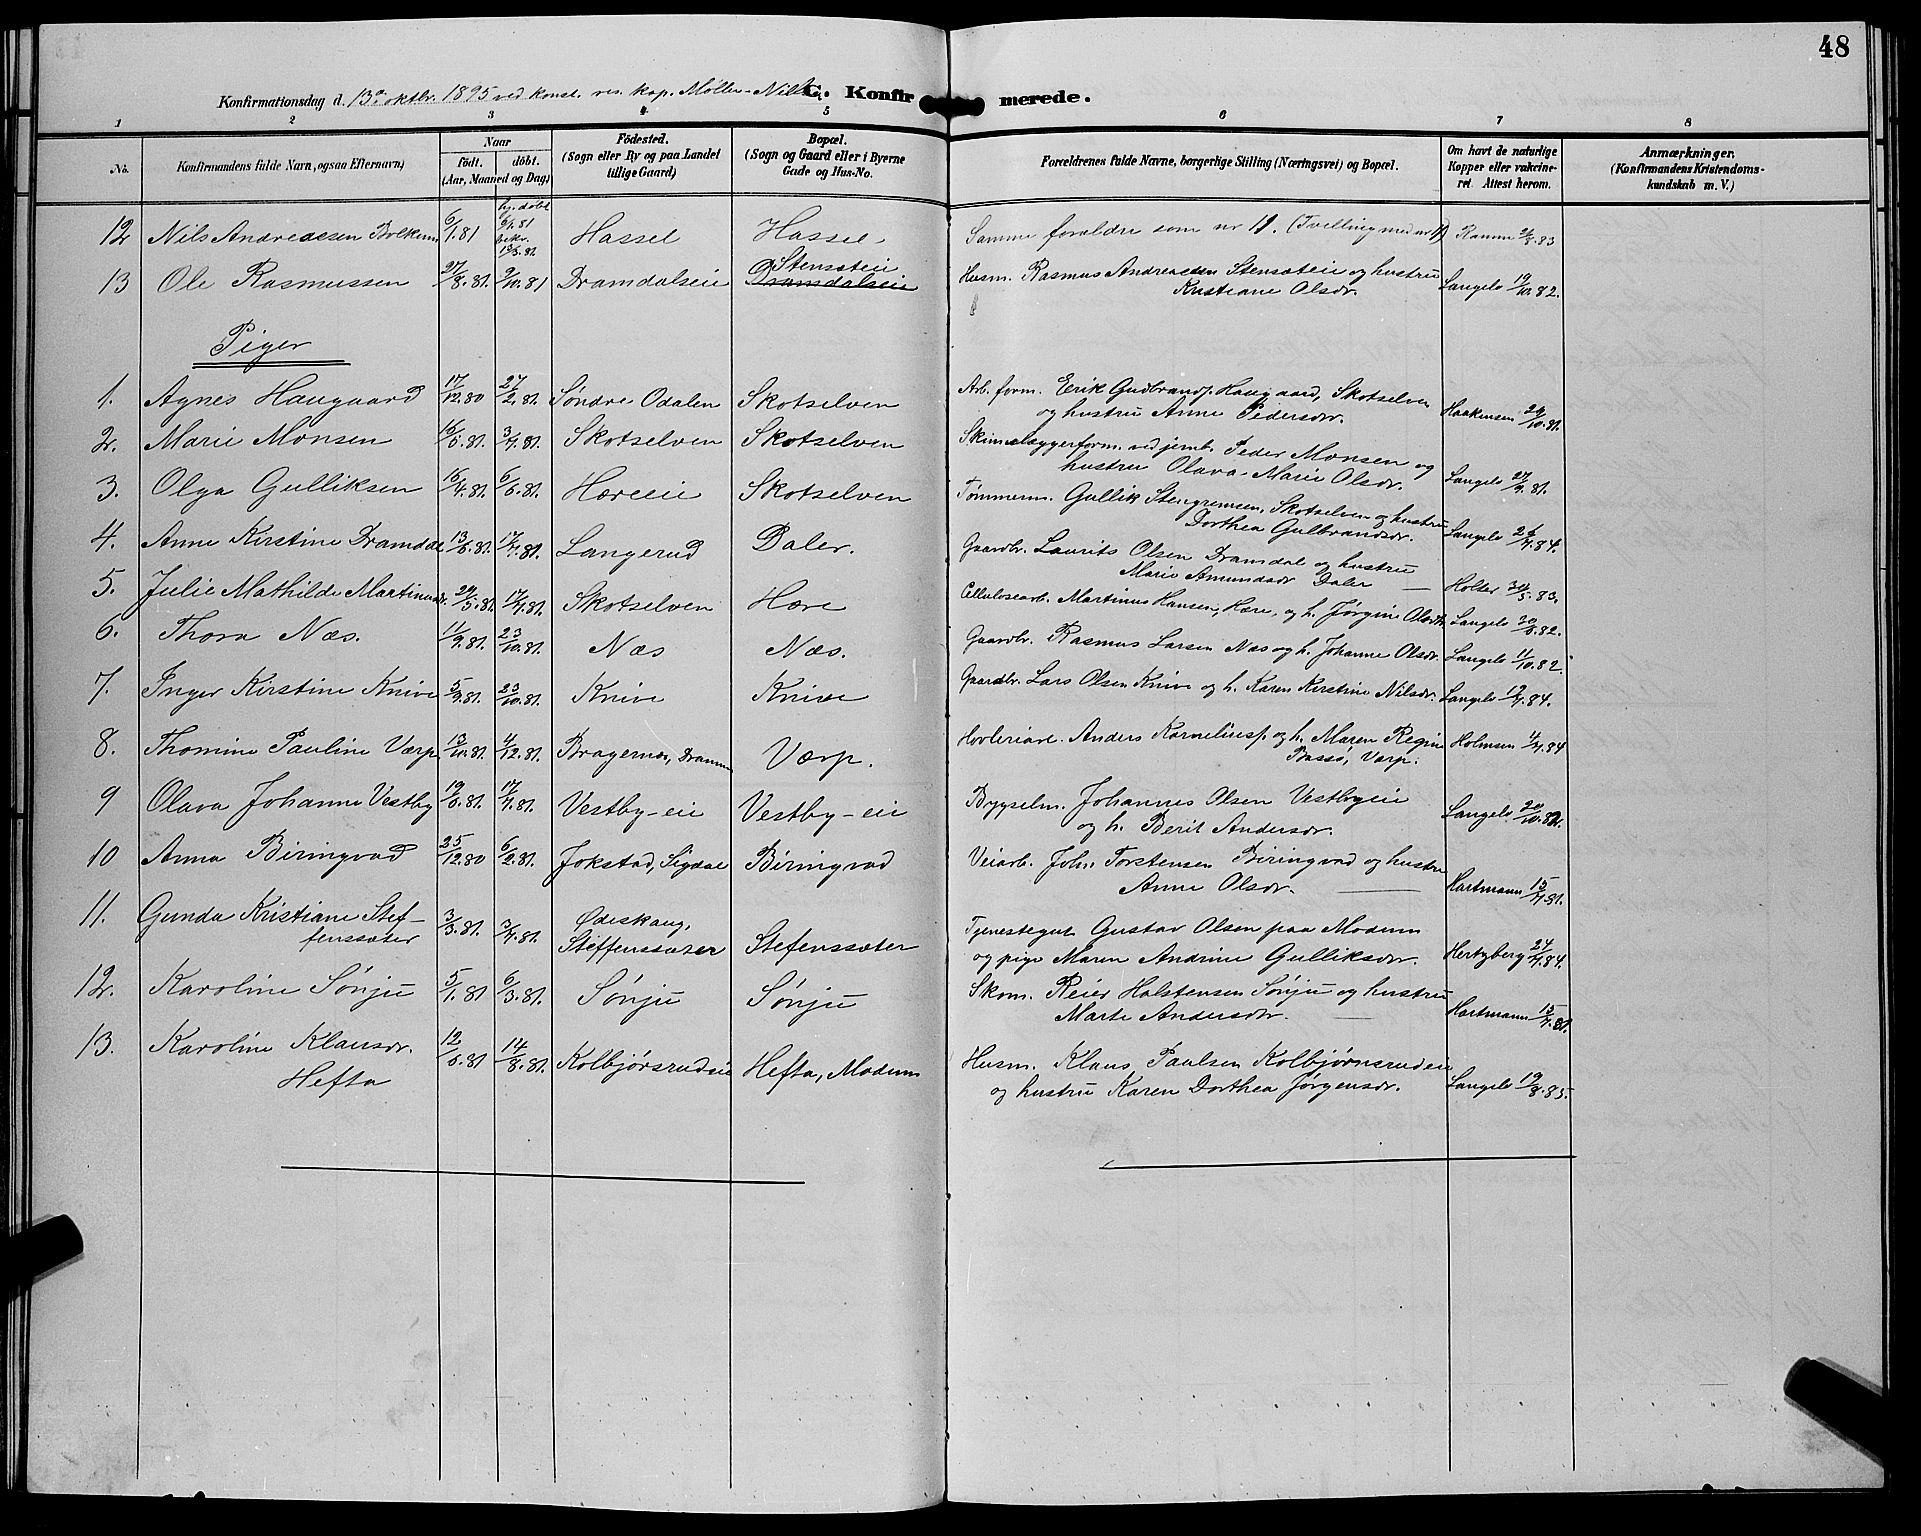 48
Konfirmationsdag d. 13de oktbr. 1895 ved konst. res. kap. Møller-
C. Konfirmerede.
1 2 3 4 5 6 7 8
No. Konfirmandens fulde Navn, ogsaa Efternavn) Naar födt. döbt. (Aar, Maaned og Dag) Födested. (Sogn eller By og paa Landet tillige Gaard) Bopæl. (Sogn og Gaard eller i Byerne Gade og Hus-No. Forældrenes fulde Navne, borgerlige Stilling (Næringsvei) og Bopæl. Om havt de naturlige Kopper eller vakcineret. Attest herom. Anmærkninger. (Konfirmandens Kristendomskundskab m. V.)
12 Nils Andreassen 6/1.81 hj. døbt 6/1.81 bekr. Hassel Hassel. Samme forældre som nr 11. (Tvilling med nr 11) Ramm 83
13 Ole Rasmussen 27/8.81 2/10.81 Dramdalseie Stensæteie Dramdalseie Husm. Rasmus Andreassen Stensæteie og hustru
Kristiane Olsdr. Langels 19/10.82.
Piger
1. Agnes Haugaard 17/12.80 27/2.81. Søndre Odalen Skotselven Arb. form. Erik Gudbrands. Haugaard, Skotselven
og hustru Anne Pedersdr. Haakensen 29/10.81.
2. Marie Monsen 16/5.81. 3/7.81. Skotselven Skotselven Skinnelæggerform. ved jernb. Peder Monsen og
hustru Olava Marie Olsdr. Langels 27/9.81.
3. Olga Gulliksen 16/4.81. 6/6.81. Hæreeie Skotselven Tømmerm. Gullik Stengrimsen, Skotselven og hustru
Dorthea Gulbrandsdr. Langels 26/7.84.
4. Anne Kirstine Dramdal 13/6.81. 17/7.81. Langerud Daler. Gaardbr. Laurits Olsen Dramdal og hustru
Marie Amundsdr Daler — Holter 30/5.83.
5. Julie Mathilde Martinusdr. 29/5.81. 17/7.81. Skotselven Hære Cellulosearb. Martinus Hansen, Hære, og h. Jørgine Olsdtr. Langels 30/5.82.
6. Thora Næs. 11/9.81. 23/10.81. Næs Næs. Gaardbr. Rasmus Larsen Næs og h. Johanne Olsdr. Langels 11/10.82.
7. Inger Kirstine Knive 5/9.81. 23/10.81. Knive Knive Gaardbr. Lars Olsen Knive og h. Karen Kirstine Nilsdr. Langels 84.
8. Thomine Pauline Værp 13/10.81. 4/12.81. Bragernæs, Dramm Værp. Høvleriarb. Anders Korneliuss. og h. Maren Regine
Bassø, Værp. Holmsen 84
9 Olava Johanne Vestby 19/6.81. 17/7.81. Vestby-eie Vestby-eie Bygselm. Johannes Olsen Vestbyeie
og h. Berit Andersdr. Langels 20/10.82.
10 Anna Biringvad 25/12.80 6/2.81. Jokstad, Sigdal Biringvad Veiarb. Joh. Torstensen Biringvad og hustru
Anne Olsdr. — Hartmann 15/7.81.
11. Gunda Kristiane Stef-
fenssæter 3/3.81. 3/7.81. Ødeskaug, Steffenssæter Stefenssæter Tjenestegut Gustav Olsen paa Modum
og pige Maren Andrine Gulliksdr. Hertzberg 24/7.84.
12. Karoline Sønju 5/1.81 6/3.81. Sønju Sønju Skom. Reier Halstensen Sønju og hustru
Marte Andersdr. — Hartmann 15/7.81.
13. Karoline Klausdr.
Hefta 12/6.81 14/8.81. Kolbjørsrudeie Hefta, Modum Husm. Klaus Paulsen Kolbjørnsrudeie
og hustru Karen Dorthea Jørgensdr. Langels 19/8.85.